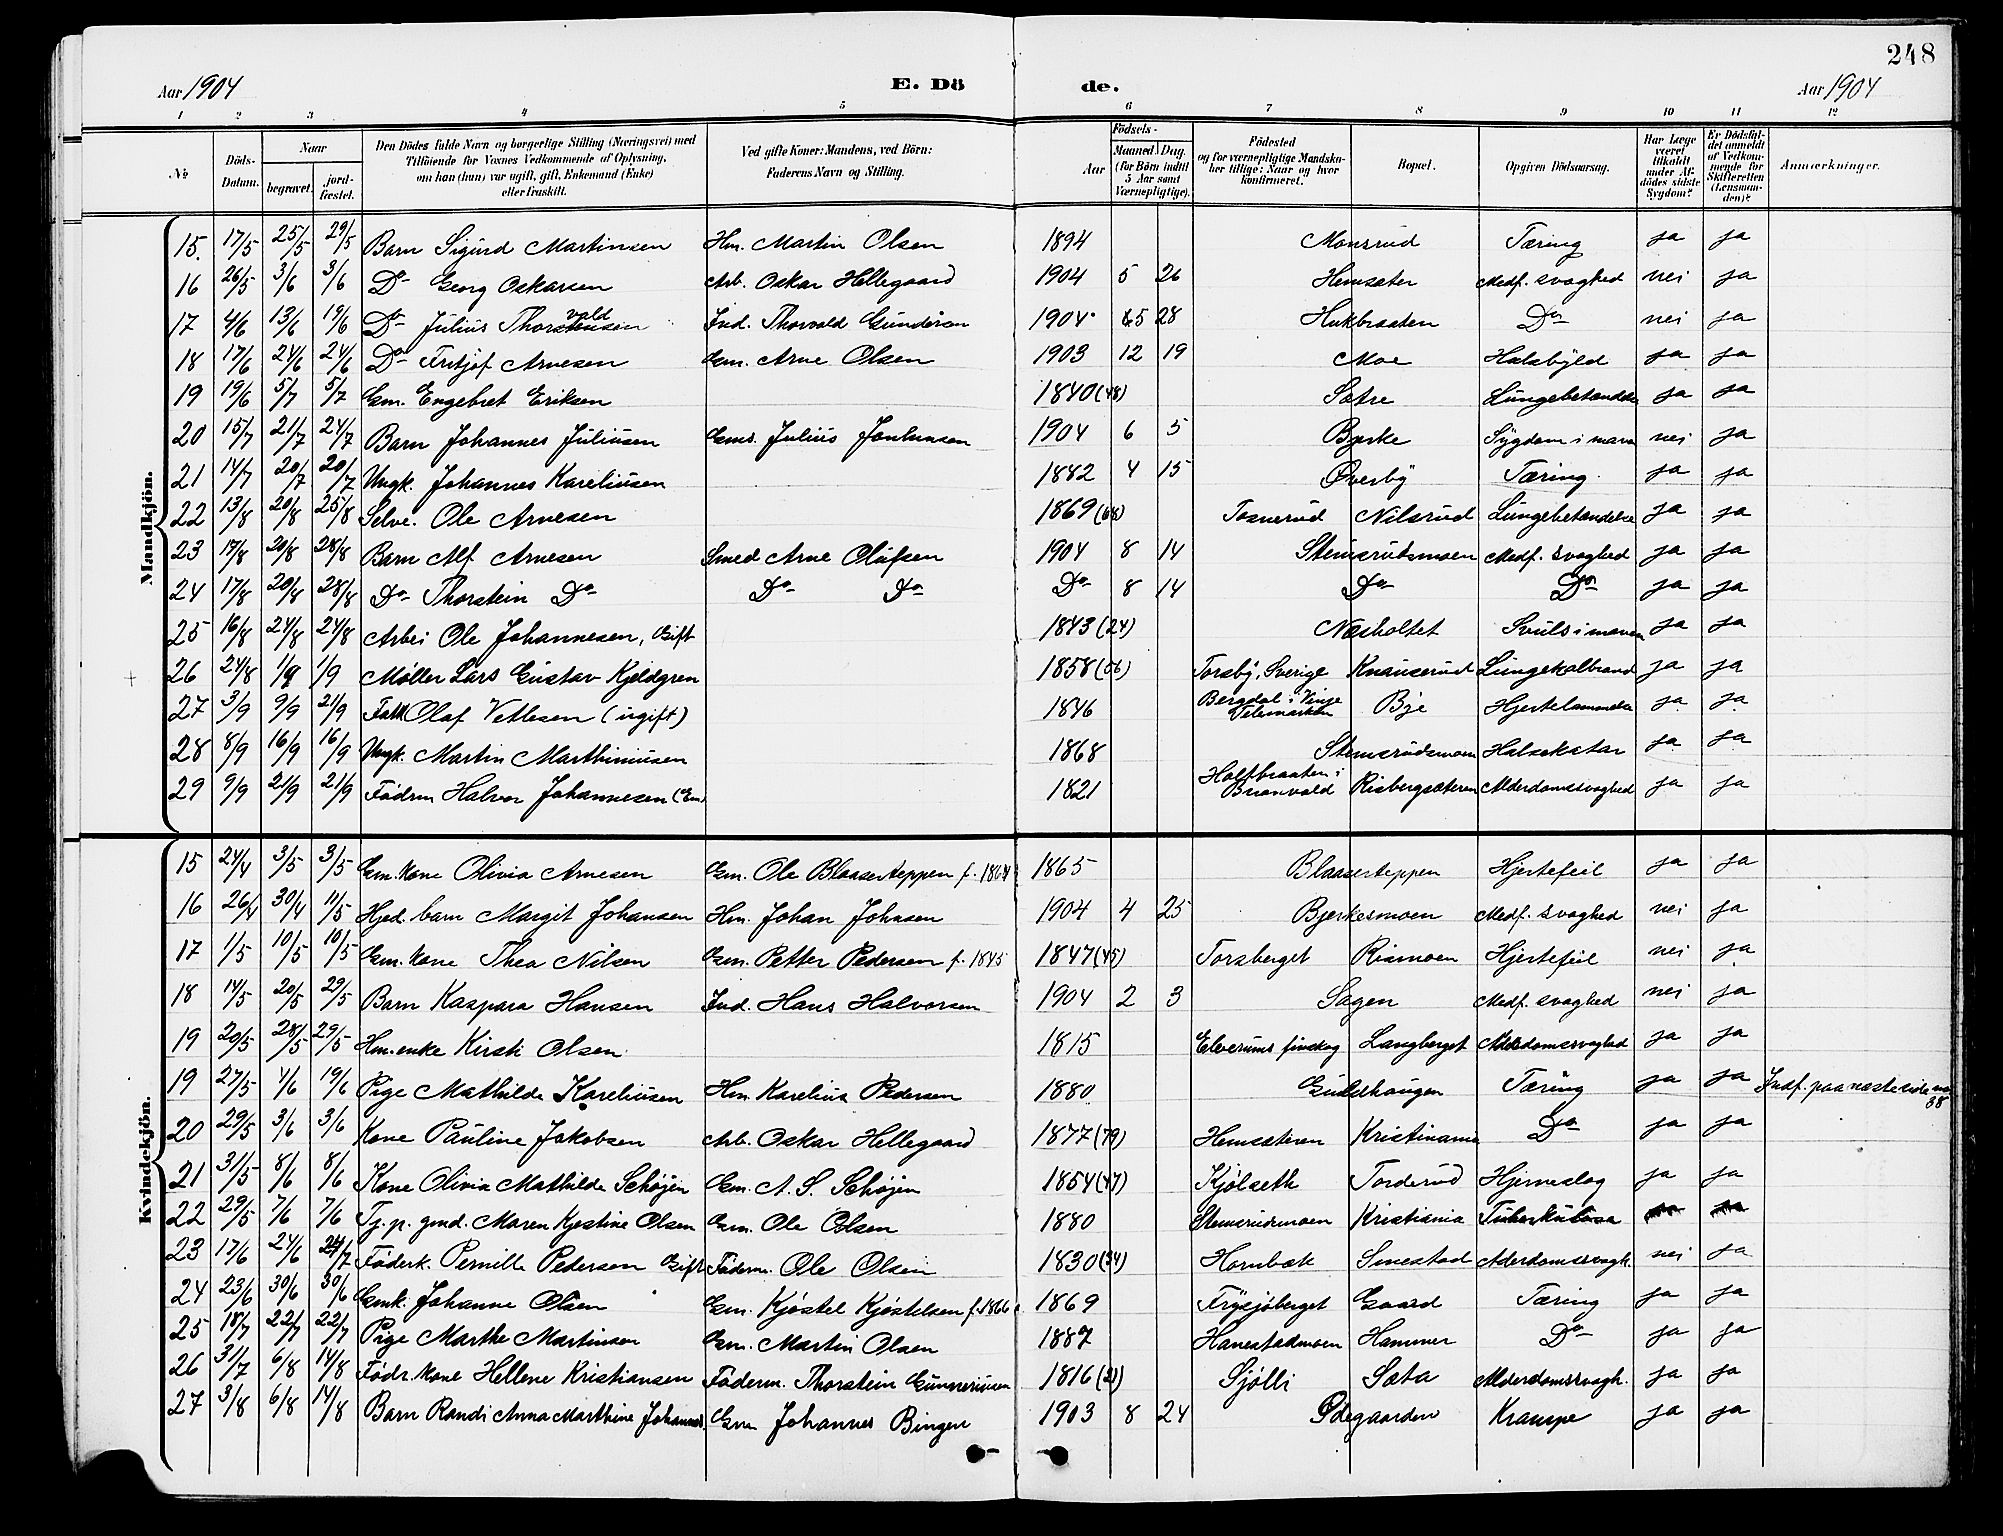 248
Aar 1904 E. Dö de. Aar 1904
1 2 3 4 5 6 7 8 9 10 11 12
№ Döds-Datum. Naar begravet. jord-fæstet. Den Dödes fulde Navn og borgerlige Stilling (Næringsvei) med Tilföiende for Voxnes Vedkommende af Oplysning, om han (hun) var ugift, gift, Enkemand (Enke) eller fraskilt. Ved gifte Koner: Mandens, ved Börn: Faderens Navn og Stilling. Födsels- Aar Maaned. Dag. (for Börn indtil 5 Aar samt Værnepligtige). Födested og for værnepligtige Mandska-ber tillige: Naar og hvor konfirmeret. Bopæl. Opgiven Dödsaarsag. Har Læge været tilkaldt under Af-dödes sidste Sygdom? Er Dödsfal-det anmeldt af Vedkom-mende for Skifteretten (Lensman-den)? Anmærkninger.
Mandkjön.
15. 17/5 25/5 29/5 Barn Sigurd Martinsen Hm. Martin Olsen 1894 Monsrud Tæring ja ja
16 26/5 3/6 3/6 Do Georg Oskarsen Arb. Oskar Hellegaard 1904 5 26 Hemsæter Medf. svaghed nei ja
17 4/6 13/6 19/6 Do Julius Thorvaldsen Ind. Thorvald Gundersen 1904 5 28 Hukbraaten Do nei ja
18 17/6 24/6 24/6 Do Fritjof Arnesen Gm. Arne Olsen 1903 12 19 Moe Halsbyld ja ja
19 19/6 5/7 5/7 Gm. Engebret Eriksen 1840 (48) Sætre Lungebetændelse ja ja
20 15/7 21/7 24/7 Barn Johannes Juliusen Gms. Julius 1904 6 5 Bjerke Sygdom i maven nei ja
21 14/7 20/7 20/7 Ungk. Johannes Kareliusen 1882 4 15 Øverby Tæring. ja ja
22 13/8 20/8 25/8 Selve. Ole Arnesen 1869 Tosnerud Nilsrud Lungebetændelse ja ja
23 17/8 20/8 28/8 Barn Alf Arnesen Smed Arne Olufsen 1904 8 14 Stemsrudsmoen Medf. svaghed ja ja
24 17/8 20/8 28/8 Do Thorstein Do Do Do Do 8 14 Do Do ja ja
25 16/8 24/8 24/8 Arbei Ole Johannesen, Gift 1843 (24) Næsholtet Svuls i maven ja ja
26 24/8 1/9 1/9 Møller Lars Gustav Kjeldgren 1858 (56) Torsby, Sverige Knauserud Lungekalbrand ja ja
27 3/9 9/9 21/9 Fatt Olaf Vetlesen (ugift) 1846 Bergdal i Vinje Telemarken Bye Hjertelammelse ja ja
28 8/9 16/9 16/9 Ungk. Martin Marthinusen 1868 Stemsrudsmoen Halsekatar ja ja
29 9/9 21/9 21/9 Födrm Halvor Johannesen (Em) 1821 Holtbraaten i Brandvold Risbergsæteren Alderdomssvaghed ja ja
Kvindekjön.
15 24/4 3/5 3/5 Gm. kone Olivia Arnesen Gm. Ole Blaasterteppen f. 1864 1865 Blaaserteppen Hjertefeil ja ja
16 26/4 30/4 11/5 Hjed. barn Margit Johansen Hm. Johan Johnsen 1904 4 25 Bjerkesmoen Medf. svaghed nei ja
17 1/5 10/5 10/5 Gm. kone Thea Nilsen Gm. Petter Pedersen f. 1845 1847 (45) Torsberget Rismoen Hjertefeil nei ja
18 14/5 20/5 29/5 Barn Kaspara Hansen Ind. Hans Halvorsen 1904 2 3 Sagen Medf. svaghed nei ja
19 20/5 28/5 29/5 Hm. enke Kirsti Olsen 1815 Elverums finskog Langberget Alderdomssvaghed ja ja
19 27/5 4/6 19/6 Pige Mathilde Kareliusen Hm Karelius Pedersen 1880 Gulehaugen Tæring ja ja Indf. paa næste side no 38
20 29/5 3/6 3/6 Kone Pauline Jakobsen Arb. Oskar Hellegaard 1877 (79) Hemsæteren Kristiania Do ja ja
21 31/5 8/6 8/6 Kone Olivia Mathilde Schøjen Gm. A. S. Schøjen 1854 (47) Kjølseth Torderud Hjerneslag ja ja
22 29/5 7/6 7/6 Tj. p. gmd. Maren Kjestine Olsen Gm. Ole Olsen 1880 Stemsrudmoen Kristiania Tuberkulosa
23 17/6 24/6 24/7 Föderk. Pernille Pedersen Gift Föderm. Ole Olsen 1830 (34) Hornbæk Smestad Alderdomssvagh. nei ja
24 23/6 30/6 30/6 Gmk. Johanne Olsen Gm. Kjøstel Kjøstelsen f. 1866 1869 Frysjöberget Gaard Tæring ja ja
25 18/7 22/7 22/7 Pige Marthe Martinsen Gm. Martin Olsen 1887 Hanestadmoen Hammer Do ja ja
26 31/7 6/8 14/8 Födr. kone Hellene Kristiansen Föderm. Thorstein Gunneriusen 1816 Sjølli Sæta Alderdomssvagh. ja ja
27 3/8 6/8 14/8 Barn Randi Anna Marthine Johannes. Gm Johannes Bingen 1903 8 24 Ødegaarden Krampe ja ja